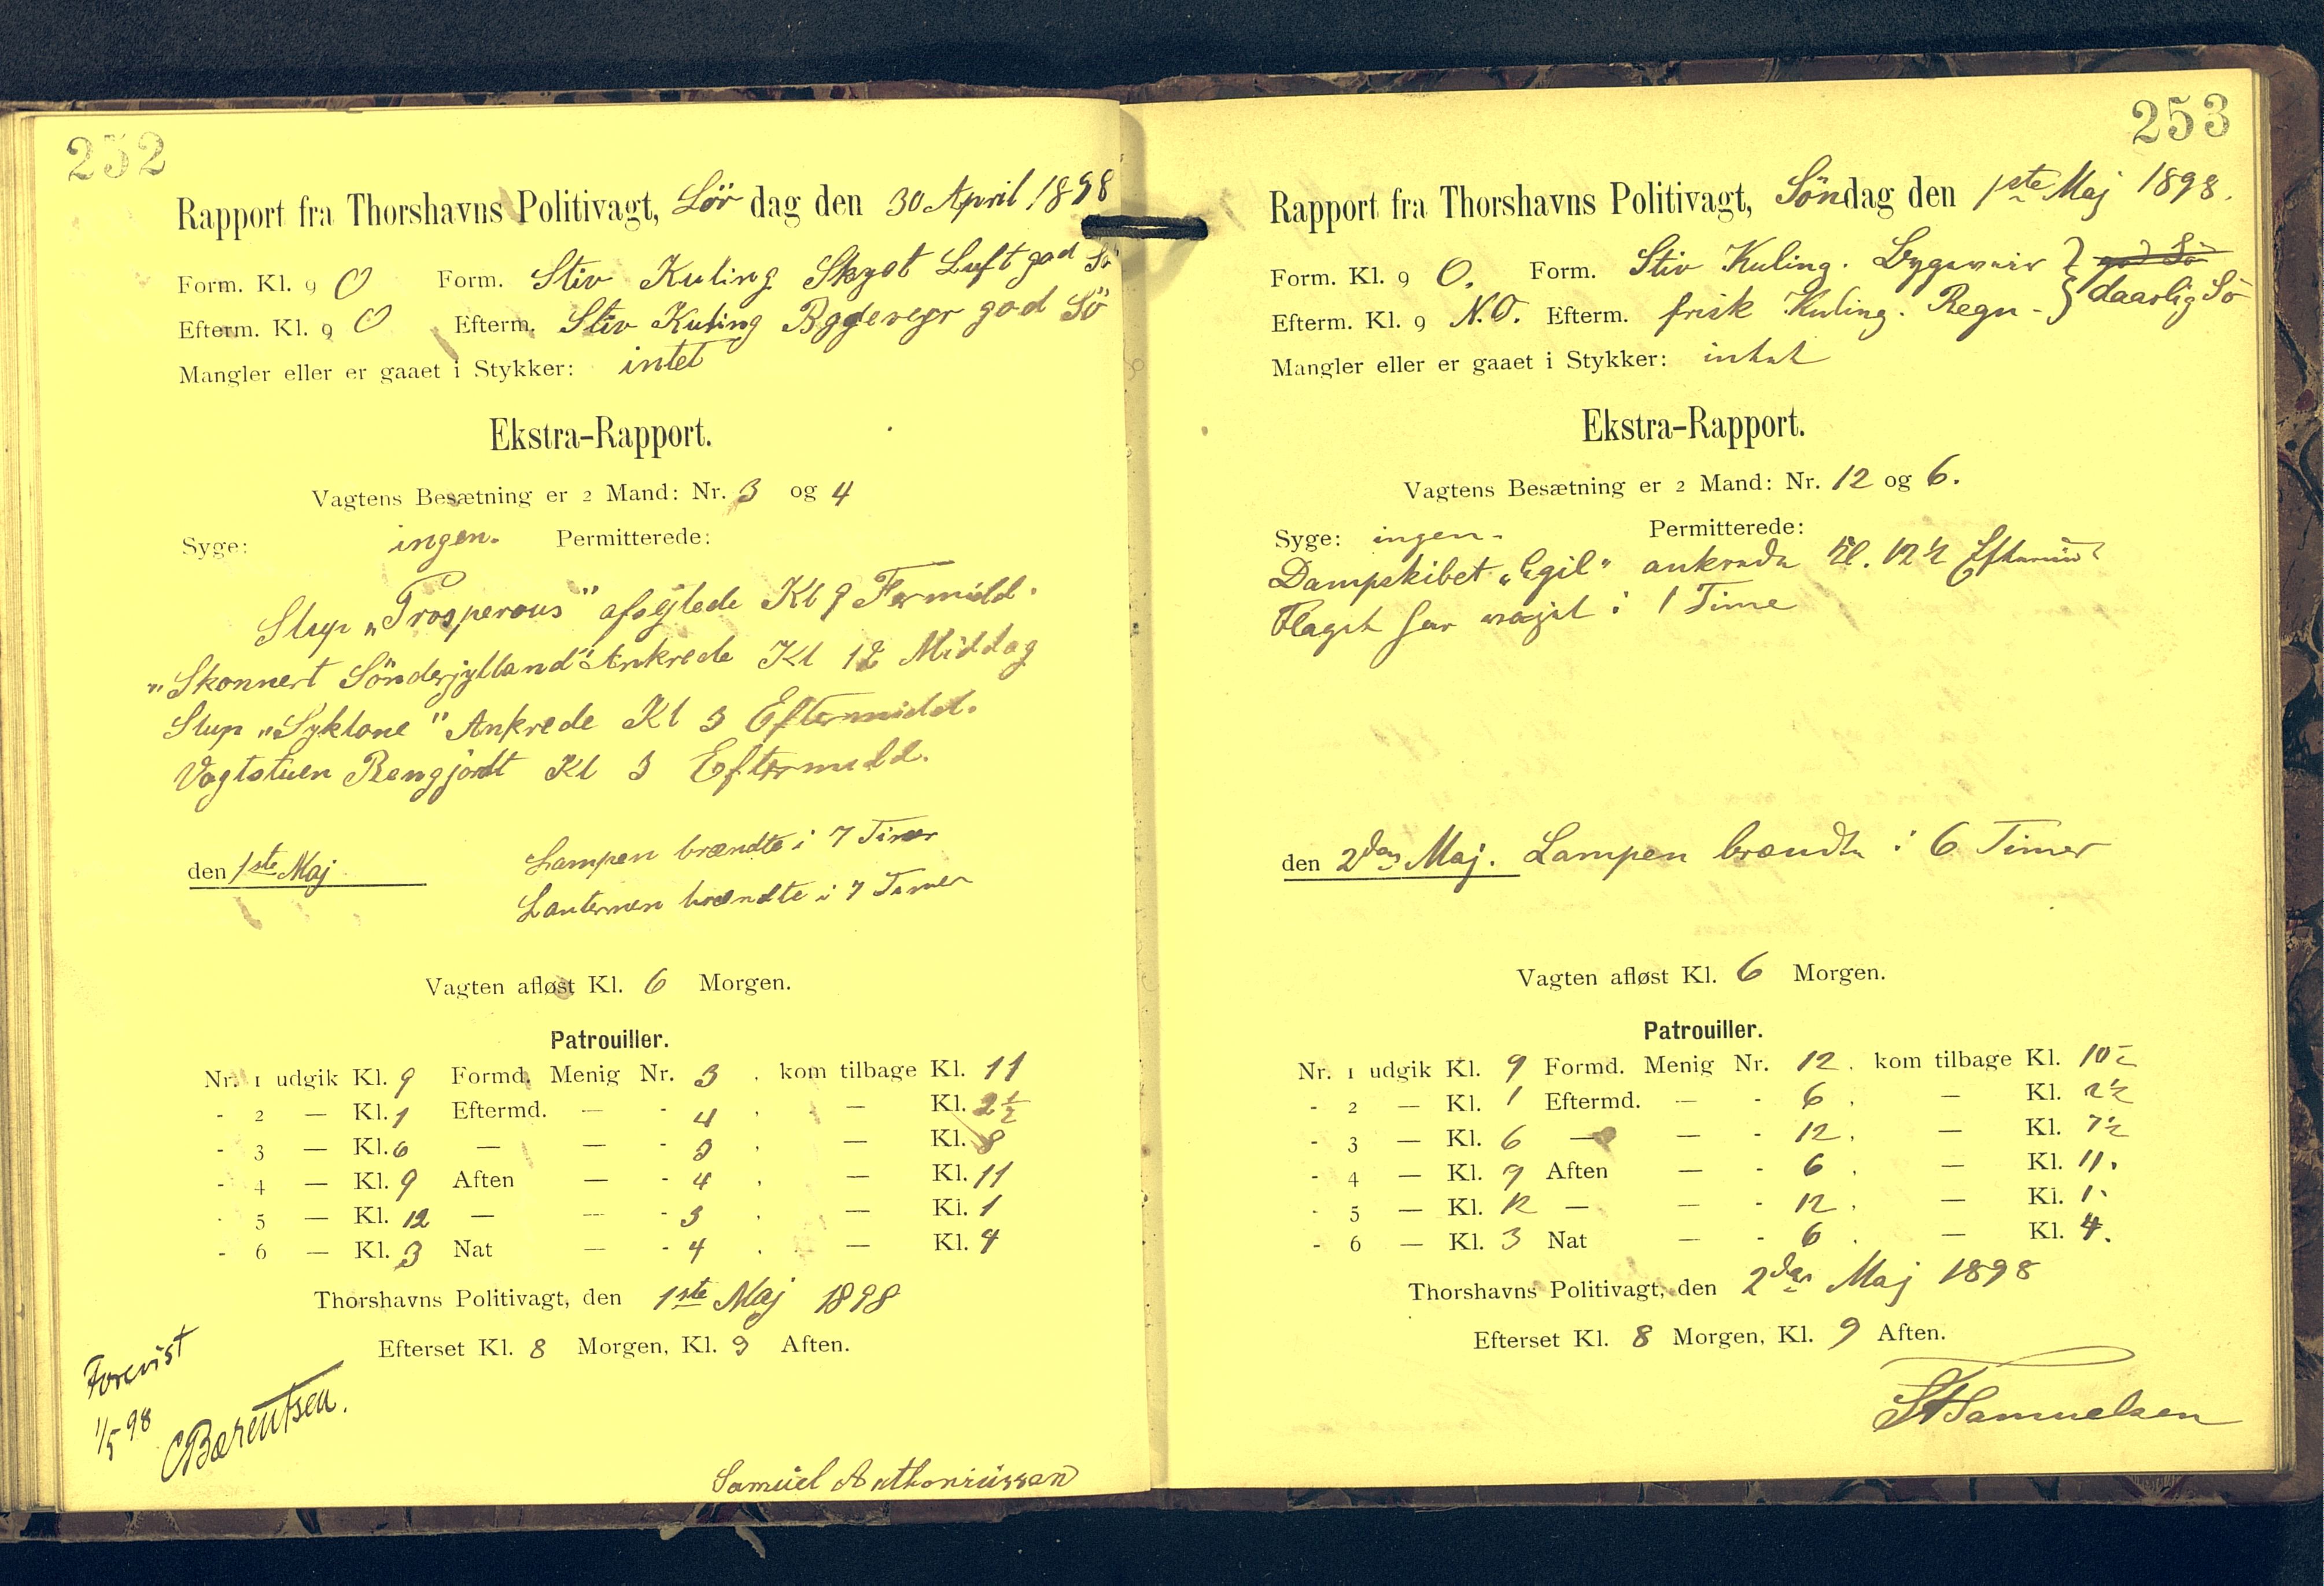 252
Rapport fra Thorshavns Politivagt, Lördag den 30 April 1898
Form. Kl. 9 O Form. Stiv Kuling Skyet Luft god Sö
Efterm. Kl. 9 O Efterm. Stiv Kuling Bygevejr god Sö
Mangler eller er gaaet i Stykker: intet
Ekstra-Rapport.
Vagtens Besætning er 2 Mand: Nr. 3 og 4
Syge: ingen. Permitterede:
Slup „Prosperous" afsejlede Kl 9 Formidd.
„Skonnert Sönderjylland" Ankrede Kl 12 Middag
Slup „Syklone" Ankrede Kl 3 Eftermidd.
Vagtstuen Rengjordt Kl 3 Eftermidd.
den 1ste Maj Lampen brændte i 7 Timer
Lanternen brændte i 7 Timer
Vagten afløst Kl. 6 Morgen.
Patrouiller.
Nr. 1 udgik Kl. 9 Formd. Menig Nr. 3 . kom tilbage Kl. 11
- 2 — Kl. 1 Eftermd. — - 4 . — Kl. 2 1/2
- 3 — Kl. 6 — — - 3 . — Kl. 8
- 4 — Kl. 9 Aften — - 4 . — Kl. 11
- 5 — Kl. 12 — — - 3 . — Kl. 1
- 6 — Kl. 3 Nat — - 4 . — Kl. 4
Thorshavns Politivagt, den 1ste Maj 1898
Efterset Kl. 8 Morgen, Kl. 9 Aften.
Forevist
1/5 98
CBærentsen.
Samuel Anthoniussen
253
Rapport fra Thorshavns Politivagt, Söndag den 1ste Maj 1898.
Form. Kl. 9 O. Form. Stiv Kuling. Bygeveir } god Sö
Efterm. Kl. 9 N.O. Efterm. frisk Kuling. Regn - } daarlig Sö
Mangler eller er gaaet i Stykker: intet
Ekstra-Rapport.
Vagtens Besætning er 2 Mand: Nr. 12 og 6.
Syge: ingen. Permitterede:
Dampskibet „Egil" ankrede Kl. 12 1/2 Eftermid
Flaget har vajet i 1 Time
den 2den Maj. Lampen brændte i 6 Timer
Vagten afløst Kl. 6 Morgen.
Patrouiller.
Nr. 1 udgik Kl. 9 Formd. Menig Nr. 12 . kom tilbage Kl. 10 1/2
- 2 — Kl. 1 Eftermd. — - 6 . — Kl. 2 1/2
- 3 — Kl. 6 — — - 12 . — Kl. 7 1/2
- 4 — Kl. 9 Aften — - 6 . — Kl. 11.
- 5 — Kl. 12 — — - 12 . — Kl. 1.
- 6 — Kl. 3 Nat — - 6 . — Kl. 4.
Thorshavns Politivagt, den 2den Maj 1898
Efterset Kl. 8 Morgen, Kl. 9 Aften.
Samuelsen